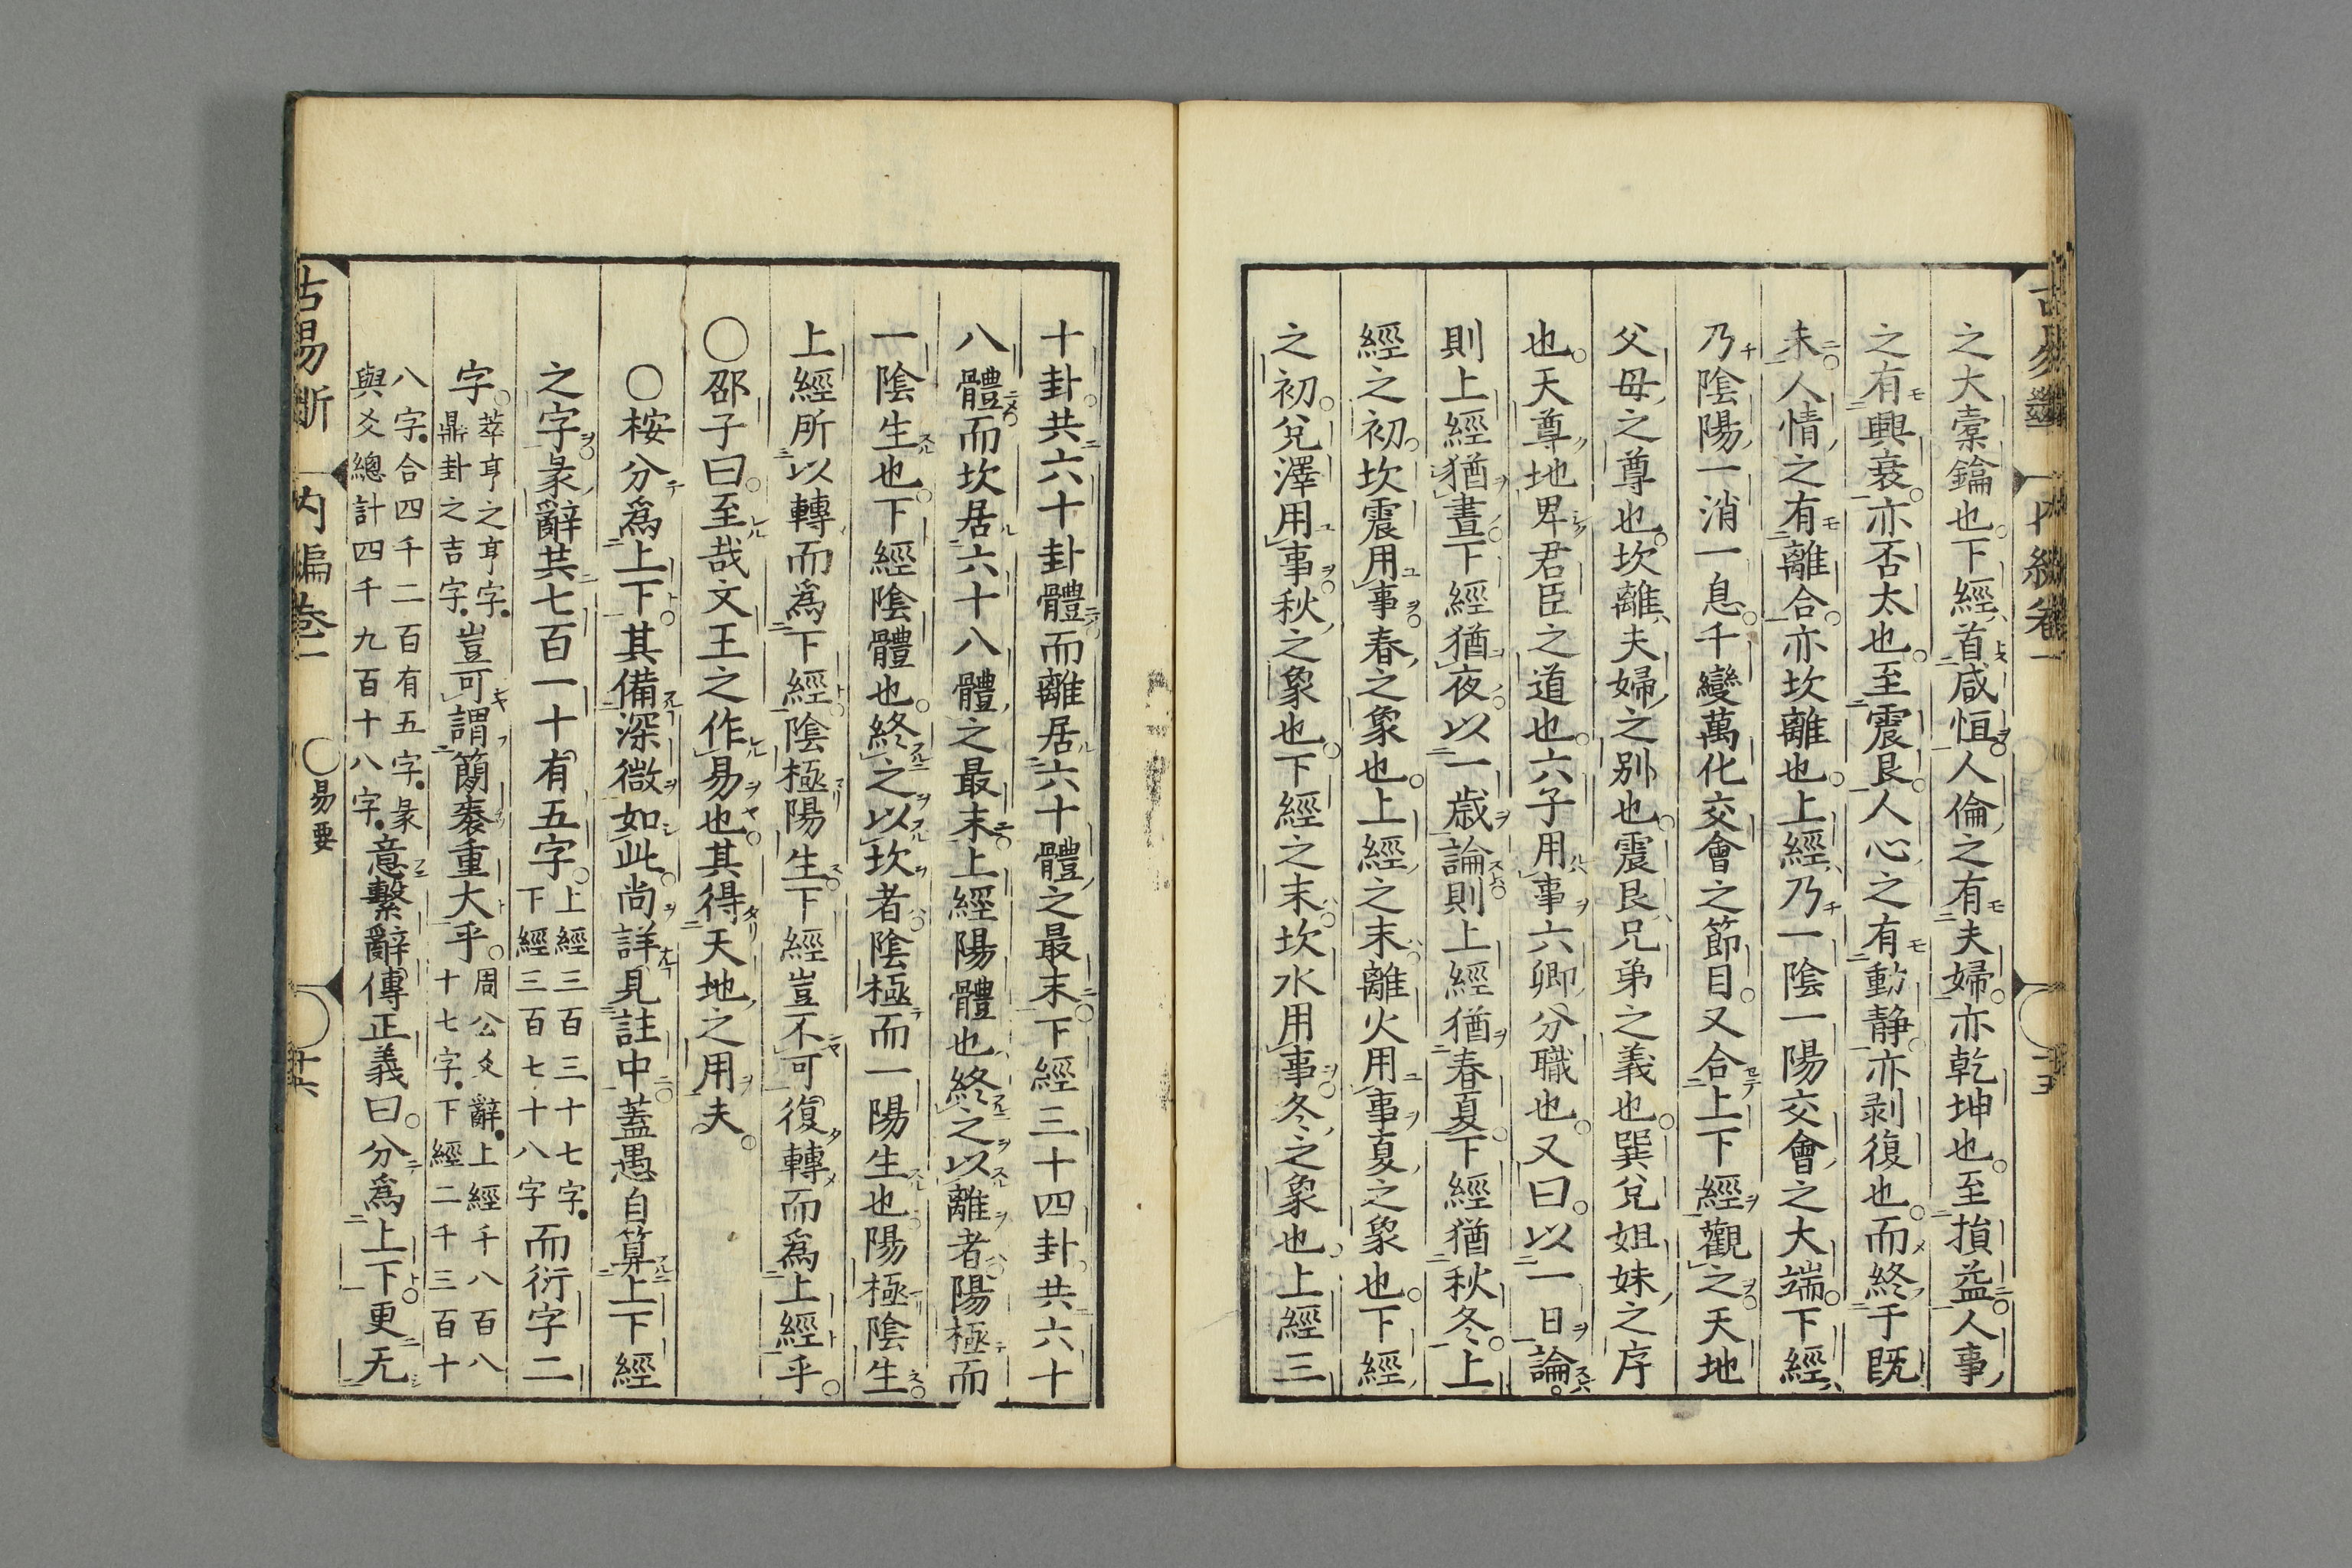 之大橐鑰也下經首咸恒人倫之有夫婦亦乾坤也至損益人事
之有興衰亦否太也至震艮人心之有動静亦剥復也而終于既
未人情之有離合亦坎離也上經乃一陰一陽交會之大端下經
乃陰陽一消一息千變萬化交會之節目又合上下經觀之天地
父母之尊也坎離夫婦之别也震艮兄弟之義也巽兌姐妹之序
也天尊地卑君臣之道也六子用事六卿分職也又曰以一日論
則上經猶晝下經猶夜以一歲論則上經猶春夏下經猶秋冬上
經之初坎震用事春之象也上經之末離火用事夏之象也下經
之初兌澤用事秋之象也下經之末坎水用事冬之象也上經三
十卦共六十卦體而離居六十體之最末下經三十四卦共六十
八體而坎居六十八體之最末上經陽體也終之以離者陽極而
一陰生也下經陰體也終之以坎者陰極而一陽生也陽極陰生
上經所以轉而爲下經陰極陽生下經豈不可復轉而爲上經乎
〇邵子曰至哉文王之作易也其得天地之用夫
〇桉分爲上下其備深微如此尚詳見註中蓋愚自算上下經
之字彖辭其七百一十有五字上經三百三十七字下經三百七十八字而衍字二
字萃亨之亨字鼎卦之吉字豈可謂簡袠重大乎周公爻辭上經千八百八十七字下經二千三百十
八字合四千二百有五字彖與爻總計四千九百十八字意繫辭傳正義曰分爲上下更无
古易斷 内編卷一 〇易要 廿六